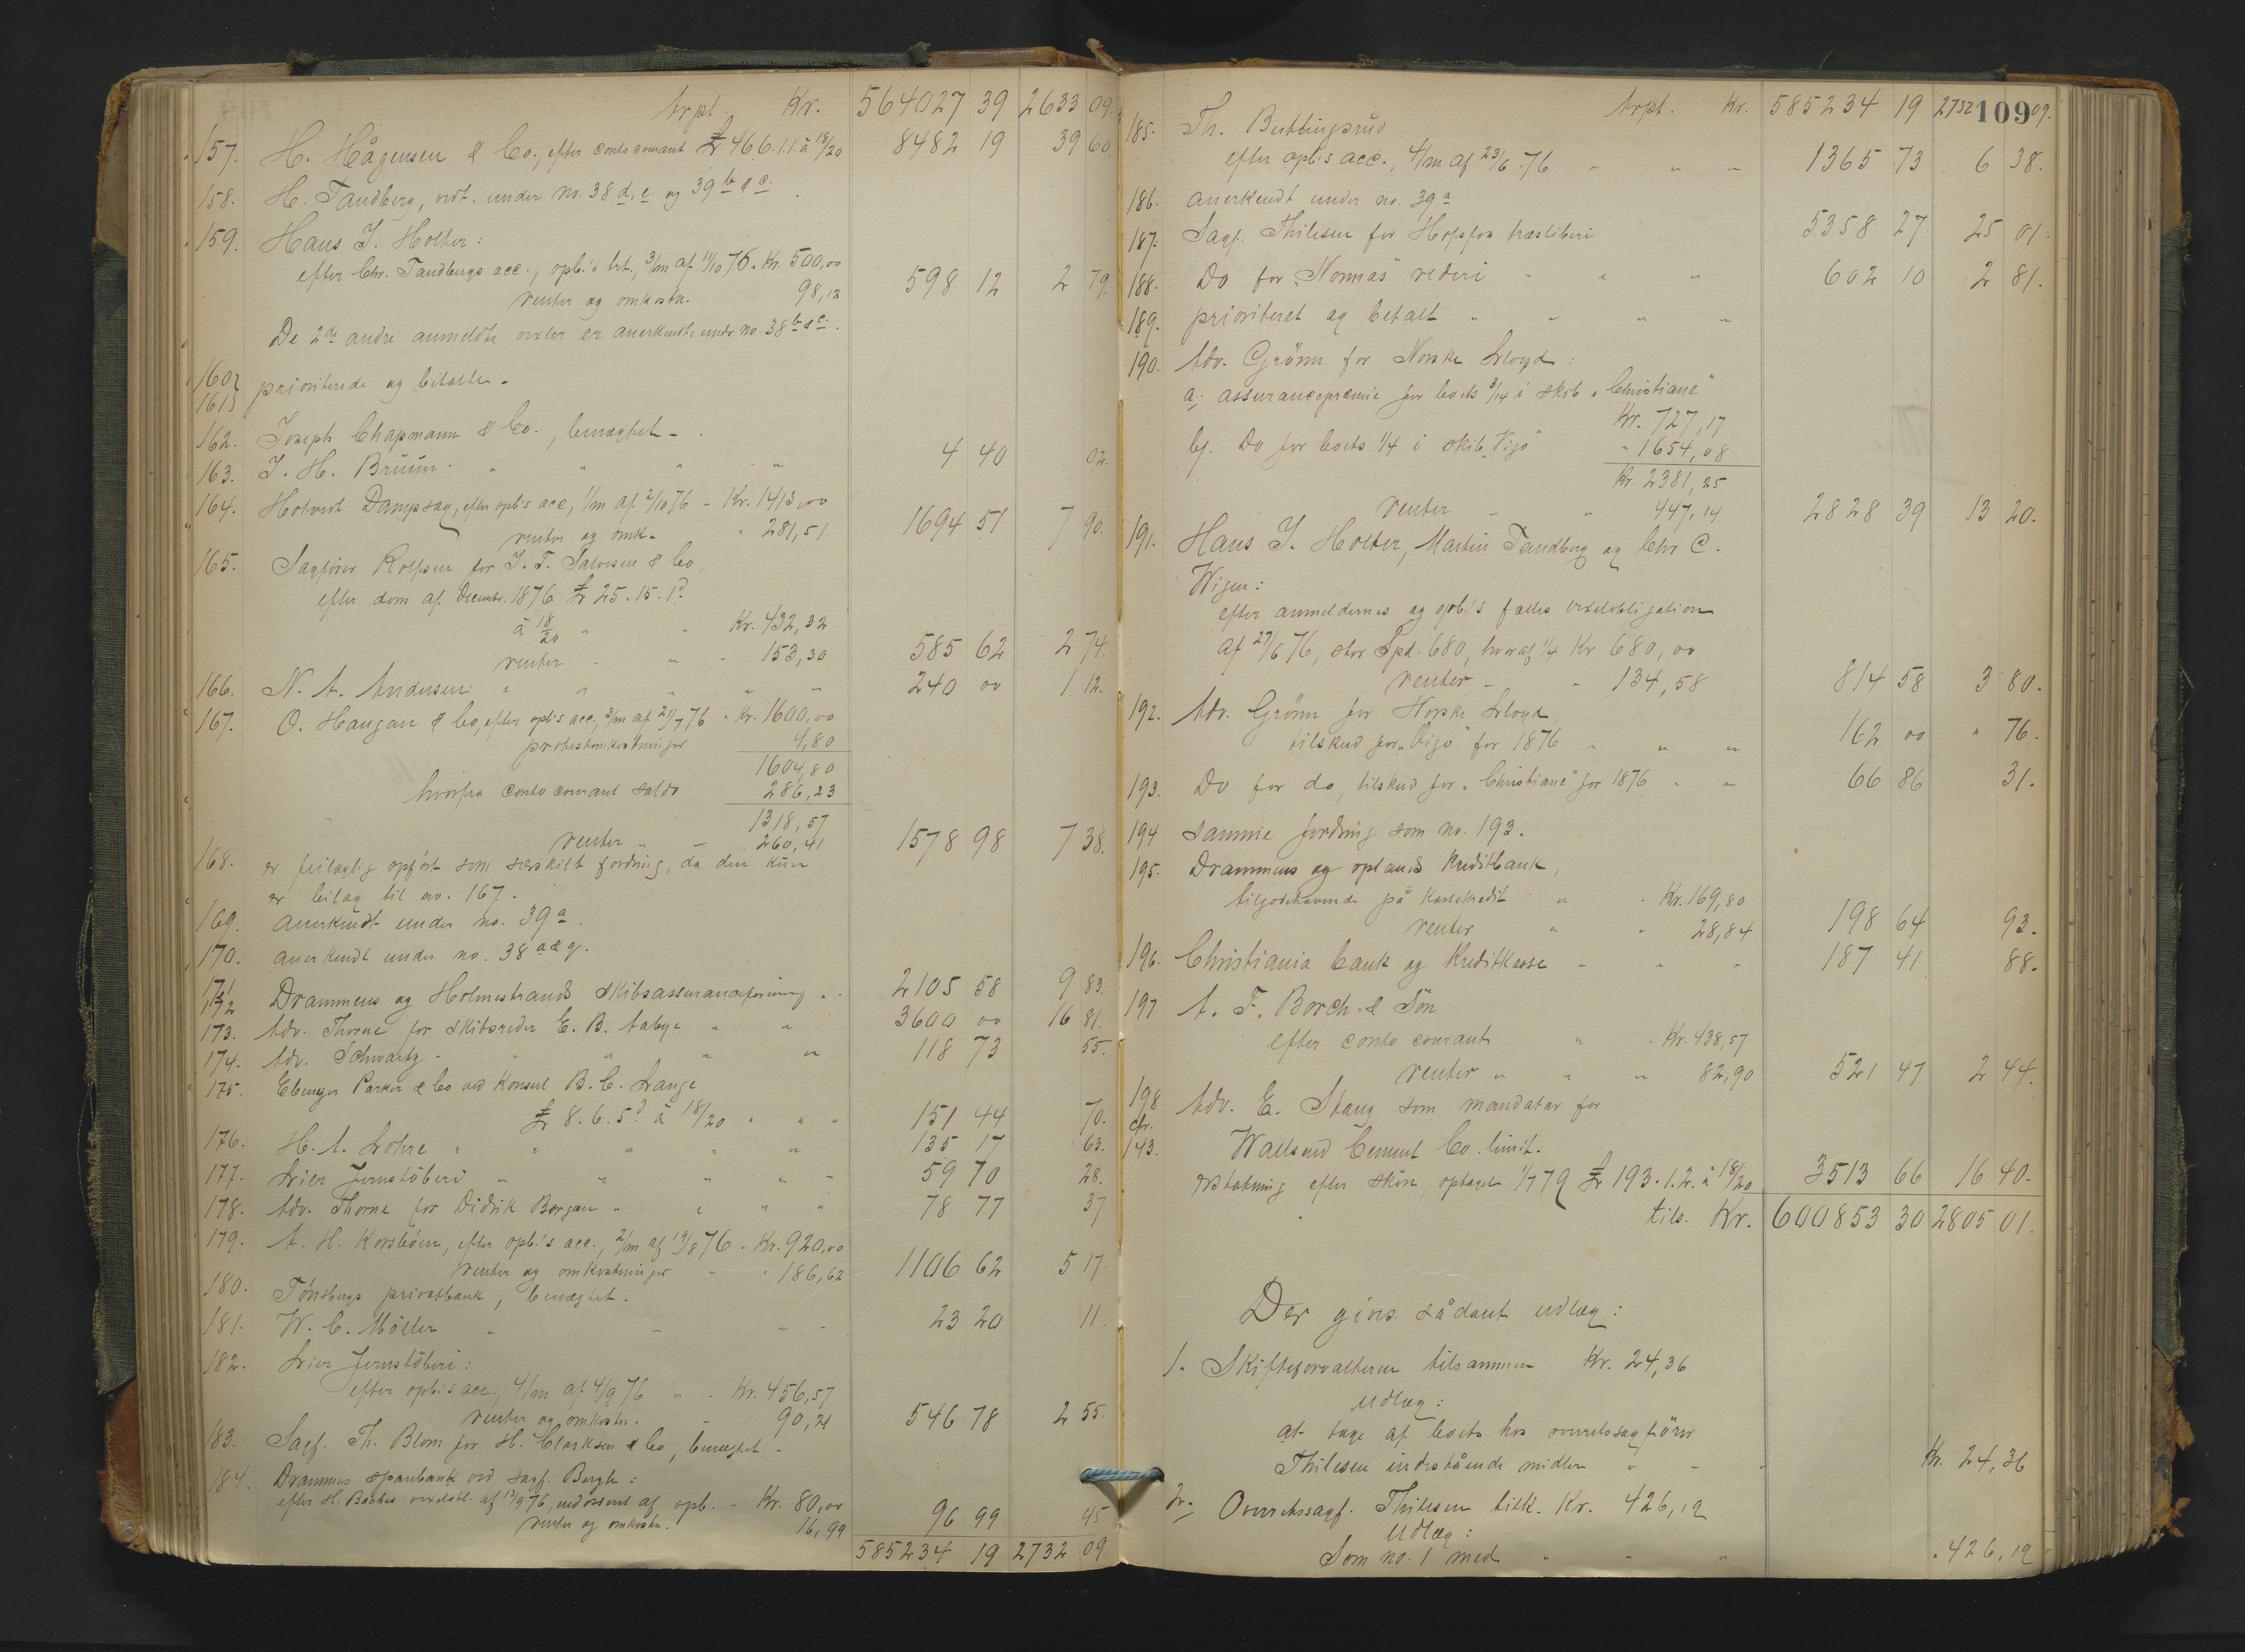 Trpt. Kr. 564027 39 2633 09.
157. H. Hågensen & Co., efter conto courant £ 466.1.1. à 18/20 8482 19 39 60
158. H. Tandberg, vidt. under no. 38 d, e og 39 b & c.
159. Hans J. Holter:
efter Chr. Tandbergs acc., opb.'s trt., 3/m af 11/10 76. Kr. 500,00
renter og omkostn. 98,12 598 12 2 79.
De 2de andre anmeldte vexler er anerkendte under no. 38 b & c.
160 161 prioriterede og betalte.
162. Joseph Chapmann & Co., benægtet.
163. J. H. Bruun 4 40 02.
164. Holtvedt Dampsag, efter opb's acc, 1/m af 2/10 76 - Kr. 1413,00
renter og omk. " 281,51 1694 51 7 90.
165. Sagfører Rolfsen for J. T. Salvesen & Co,
efter dom af Decembr. 1876 £ 25.15.1d
à 18/20 " - Kr. 432,32
renter - " - 153,30 585 62 2 74.
166. N. A. Andersen " " " " " 240 00 1 12.
167. O. Haugan & Co, efter opb's acc., 3/m af 21/7 76 - Kr. 1600,00
protestomkostninger 4,80
1604,80
hvorfra conto courant saldo 286,23
1318,57
renter - - 260,41 1578 98 7 38.
168. er feilagtig opført som særskilt fordring, da den kun
er bilag til no. 167.
169. anerkendt under no. 39 a.
170. anerkendt under no. 38 a & g.
171 172 Drammens og Holmestrands Skibsassuranceforening 2105 58 9 83.
173. Adv. Thorne for skibsreder E. B. Aaby " " 3600 00 16 81.
174. Adv. Schwartz - " " " " 118 73 55.
175. Ebenezer Parker & Co ved Konsul B. C. Lange
£ 8.6.5d à 18/20 " " " 151 44 70.
176. H. A. Lohre " " " " " 135 17 63.
177. Lier Jernstöberi " " " " - 59 70 28.
178. Adv. Thorne for Didrik Borgen " " " " 78 77 37
179. A. H. Korsböen, efter opb.'s acc., 2/m af 19/8 76 - Kr. 920,00
renter og omkostninger - " 186,62 1106 62 5 17.
180. Tönsbergs privatbank, benægtet.
181. W. C. Möller " - - - 23 20 11.
182. Lier Jernstöberi:
efter opb.'s acc., 4/m af 4/9 76 " - Kr. 456,57
renter og omkostn. - 90,21 546 78 2 55.
183. Sagf. Th. Blom for H. Clarksen & Co, benægtet.
184. Drammens sparebank ved sagf. Bergh:
efter H. Baches vexelobl. af 12/9 76, endosseret af opb. - Kr. 80,00
renter og omkostn. 16,99 96 99 45
585234 19 2732 09.
109
Trpt. Kr. 585234 19 2732 09.
185. Th. Buttingsrud
efter opb.'s acc., 4/m af 23/6 76 " " - 1365 73 6 38.
186. anerkendt under no. 39 a
187. Sagf. Thilesen for Hofsfos træsliberi 5358 27 25 01.
188. Do for "Nornas" rederi " " " 602 10 2 81.
189. prioriteret og betalt " " " "
190. Adv. Grönn for Norske Lloyd:
a. assurancepræmie for boets 3/14 i skib "Christiane"
Kr. 727,17
b. Do for boets 1/4 i skib "Vigo" " 1654,08
Kr. 2381,25
renter - " 447,14 2828 39 13 20.
191. Hans J. Holter, Martin Tandberg og Chr C.
Wigen:
efter anmeldernes og opb.'s fælles vexelobligation
af 27/6 76, stor Spd. 680, hvoraf 1/4 Kr 680,00
renter - - 134,58 814 58 3 80.
192. Adv. Grönn for Norske Lloyd,
tilskud for "Vigo" for 1876 " " " 162 00 " 76.
193. Do for do, tilskud for "Christiane" for 1876 " - 66 86 31.
194 samme fordring som no. 193.
195. Drammens og oplands kreditbank,
tilgodehavende på kassekredit " - Kr. 169,80
renter " " 28,84 198 64 93.
196. Christiania bank og Kreditkasse - - - 187 41 88.
197 A. F. Borch & Sön
efter conto courant " - Kr. 438,57
renter " " " 82,90 521 47 2 44.
198 Adv. E. Stang som mandatar for
cfr. 143. Wallsend Cement Co. limit.
erstatning efter skön, optaget 1/7 79 £ 193.1.2. à 18/20 3513 66 16 40.
tils. Kr. 600853 30 2805 01.
Der gives sådant udlæg:
1. Skifteforvalteren tilsammen Kr. 24,36
Udlæg:
at tage af boets hos overretssagförer
Thilesen indestående midler " - " Kr. 24,36
2. Overretssagf. Thilesen tilk. Kr. 426,12
Udlæg:
Som no. 1 med " " " " 426,12